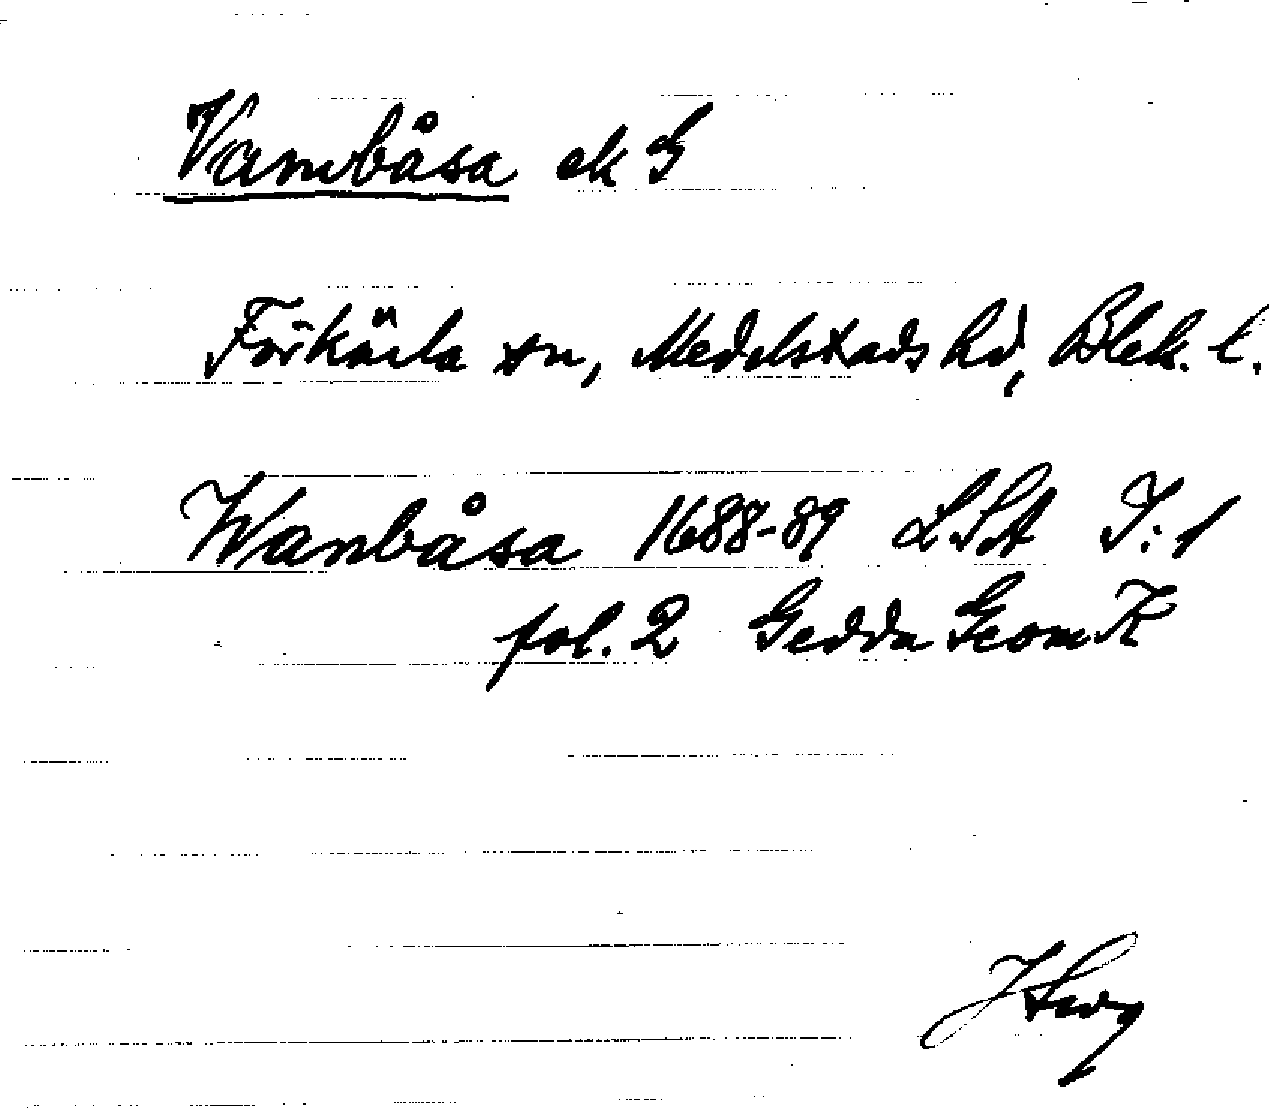 Vambåsa ek G
Förkärla sn, Medelstads hd, Blek. l.
Wanbåsa 1688-89 LSA I:1
fol. 2 Gedda GeomK